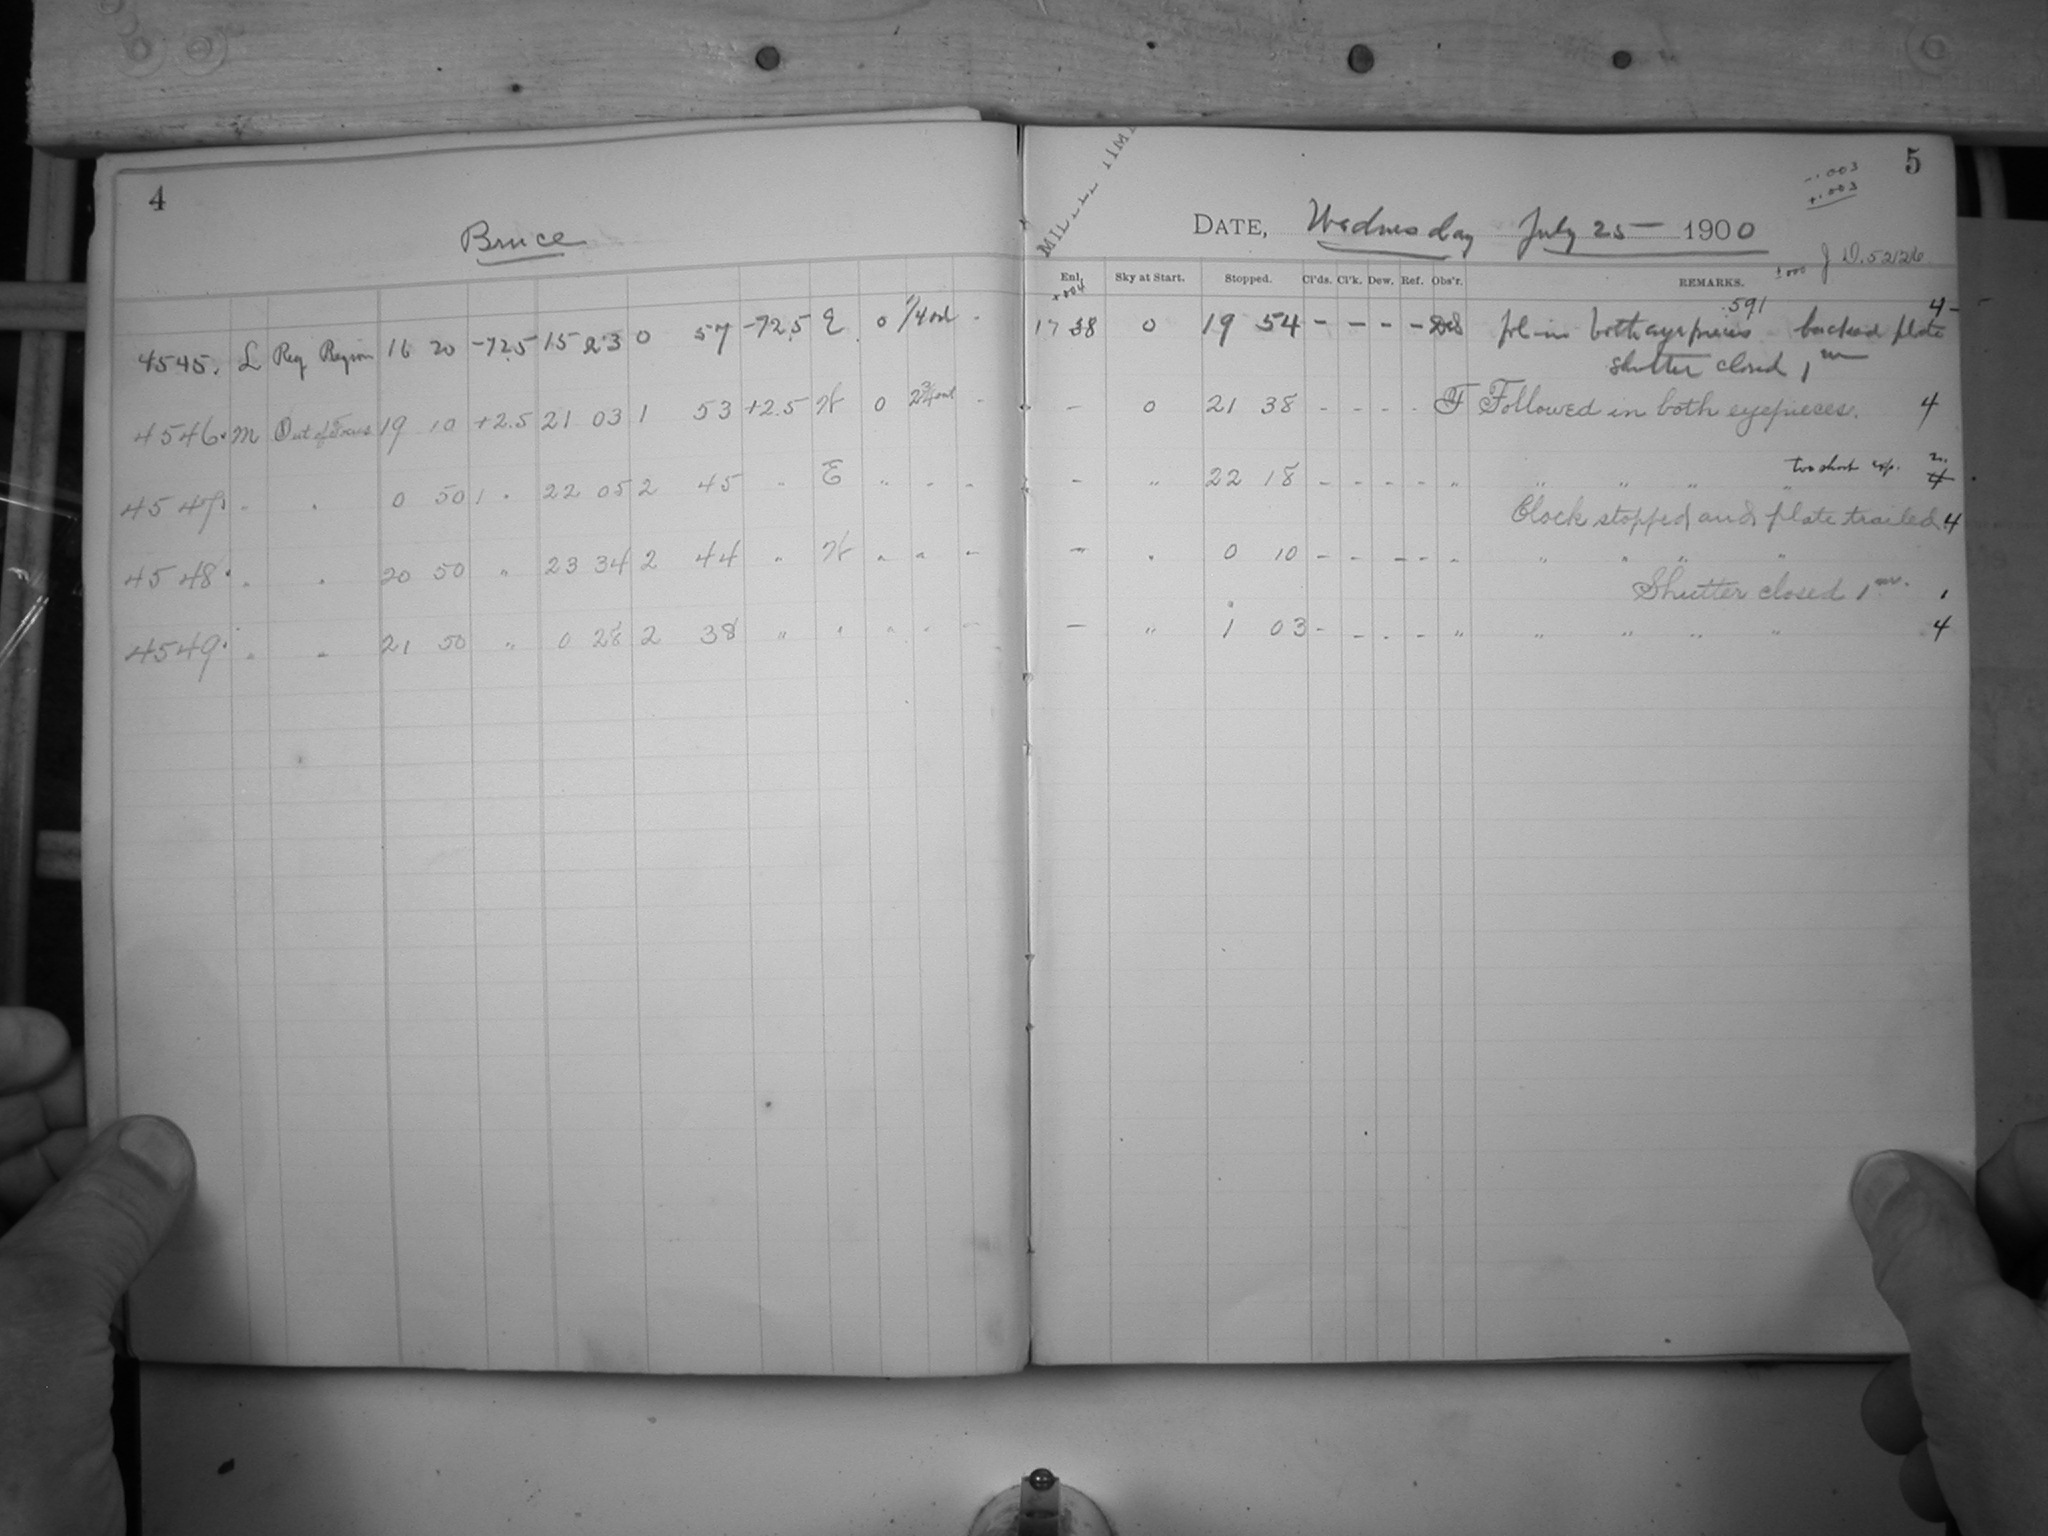 4
Bruce
4545. L Reg Region 16 20 -72.5 15 23 0 57 -72.5 E 0 -
4546. M Out of Focus 19 10 +2.5 21 03 1 53 +2.5 W 0 -
4547 " " 0 50 " 22 05 2 45 " E " - -
4548. " " 20 50 " 23 34 2 44 " W " " -
4549. " " 21 50 " 0 28 2 38 " " " - -
5
-.003
+.003
DATE, Wednesday July 25 - 1900
J D. 5226
±000
Enl. Sky at Start. Stopped. Cl'ds. Cl'k. Dew. Ref. Obs'r. REMARKS.
+004
591
17 38 0 19 54 - - - - fol in both eyepieces backed plate 4-
shutter closed 1m
- 0 21 38 - - - - F Followed in both eyepieces. 4
too short exp. 2.
- " 22 18 - - - - " " " " " 4
Clock stopped and plate trailed 4
- " 0 10 - - - - " " " " "
Shutter closed 1m. 1
- " 1 03 - - - - " " " " " 4